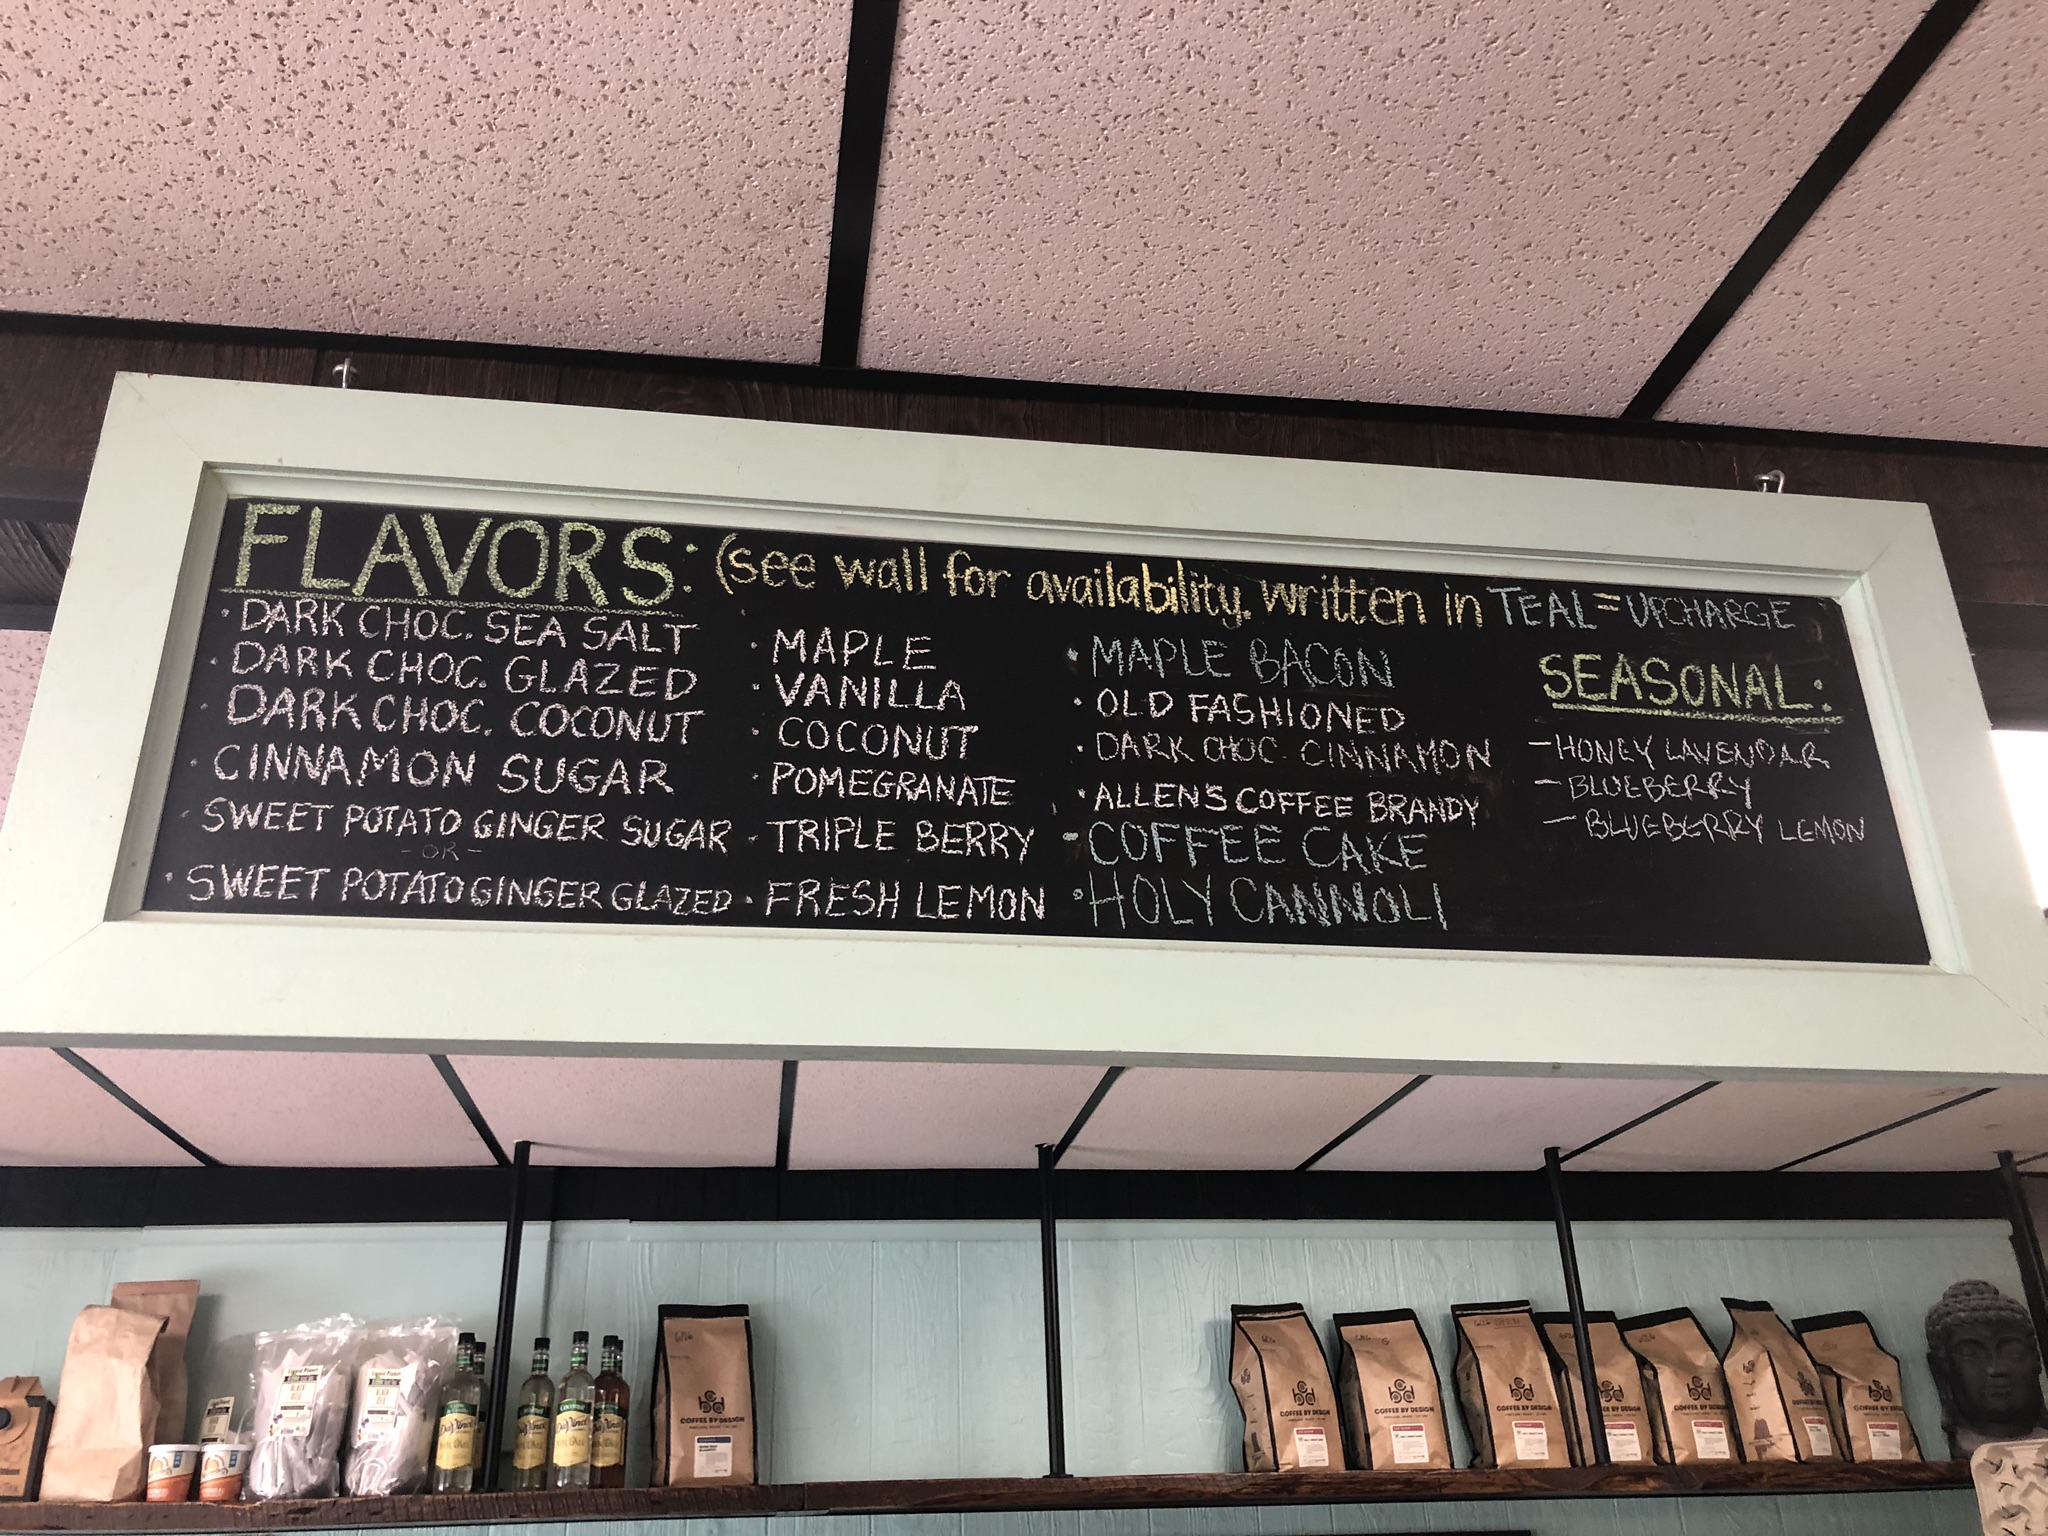 FLAVORS: (see wall for availability. written in TEAL = UPCHARGE
· DARK CHOC. SEA SALT
· DARK CHOC. GLAZED
· DARK CHOC. COCONUT
· CINNAMON SUGAR
· SWEET POTATO GINGER SUGAR
- OR -
· SWEET POTATO GINGER GLAZED
· MAPLE
· VANILLA
· COCONUT
· POMEGRANATE
· TRIPLE BERRY
· FRESH LEMON
· MAPLE BACON
· OLD FASHIONED
· DARK CHOC. CINNAMON
· ALLEN'S COFFEE BRANDY
- COFFEE CAKE
· HOLY CANNOLI
SEASONAL:
- HONEY LAVENDAR
- BLUEBERRY
- BLUEBERRY LEMON
DaVinci
DaVinci
DaVinci
COFFEE BY DESIGN
COFFEE BY DESIGN
COFFEE BY DESIGN
COFFEE BY DESIGN
COFFEE BY DESIGN
COFFEE BY DESIGN
COFFEE BY DESIGN